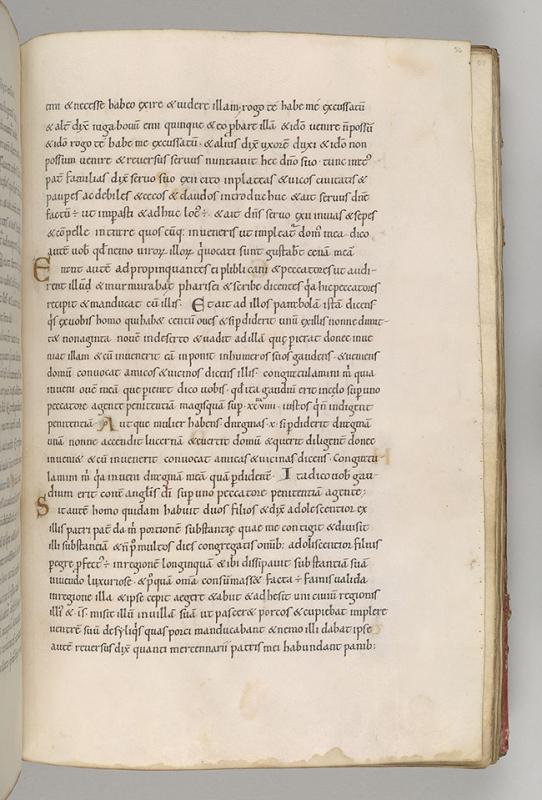 emi & necesse habeo exire & videre illam. rogo te habe me excusatū
& alt̄ dix̄ iuga boum emi quinque & eo p̱bare illa & ido venire n̄ possū
& ido rogo te habe me excusatū. & alius dix̄ uxore duxi & ido non
possum venire & reversus servus nuntiavit hec dn̄o suo. tunc
pat̄ familias dix̄ servo suo exi cito in plateas & vicos civitatis &
paup̱es ac debiles & cecos & claudos introduc huc. & ait servus dn̄e
factū ÷ ut imp̱asti & adhuc loc' ÷. & ait dn̄s servo exi in vias & sepes
& cōpelle intrare quos cūq; inveneris ut impleat̄ dom' mea. dico
autē vob qd̄ nemo viroꝝ illoꝝ qui vocati sunt gustab̄t cenā meā
Erant autē adpropinquantes ei publicani & peccatores ut audi-
rent illūd & murmurabat pharisei & scribe dicentes q̄a hic peccatores
recipit & manducat cū illis. Et ait ad illos parabolā istā dicens
q̄s ex vobis homo qui habe centū oves & si p̱diderit unū ex illis nonne dimit-
te nonaginta novē in deserto & vadit ad illā que p̱ierat donec inve
niat illam & cū invenerit eā inponit in humeros suos gaudens. & veniens
domū convocat amicos & vicinos dicens illis. congratulamini m̄ quia
inveni ovē meā que p̱ierat. dico vobis. qd̄ ita gaudiū erit in cęlo sup̱ uno
peccatore agente penitentiā magis quā sup̱. xcviiii. iustos q̄ n̄ indigent
penitentiā. Aut que mulier habens dragmas. x. si p̱diderit dragmā
unā nonne accendit lucernā & evertit domū & querit diligent̄ donec
inveniė & cū invenerit convocat amicas & vicinas dicens. Congratu
lamini m̄ q̄a inveni dragmā meā quā p̱dideram. Ita dico vob gau-
dium erit corā anglis dī sup̱ uno peccatore penitentiā agente;
Sit autē homo quidam habuit duos filios & dix̄ adolescentior ex
illis patri pat̄ da m̄ portionē substantię quae me contigit & divisit
illi substantiā & n̄ p̱' multos dies congregatis omib; adoliscentior filius
pegre p̱fect' ÷ in regionē longinquā & ibi dissipavit substantiā suā
vivendo luxuriose. & p̱'quā omā consūmasset facta ÷ famis valida
in regione illa & ipse cepit aegere & abiit & adhesit uni civiū regionis
illi' & .is. misit illū in villā suā ut pascere porcos & cupiebat implere
ventrē suū de syliq̄s quas porci manducabant & nemo illi dabat ipse
autē reversus dix̄ quanti mercennarii patris mei habundant panib;